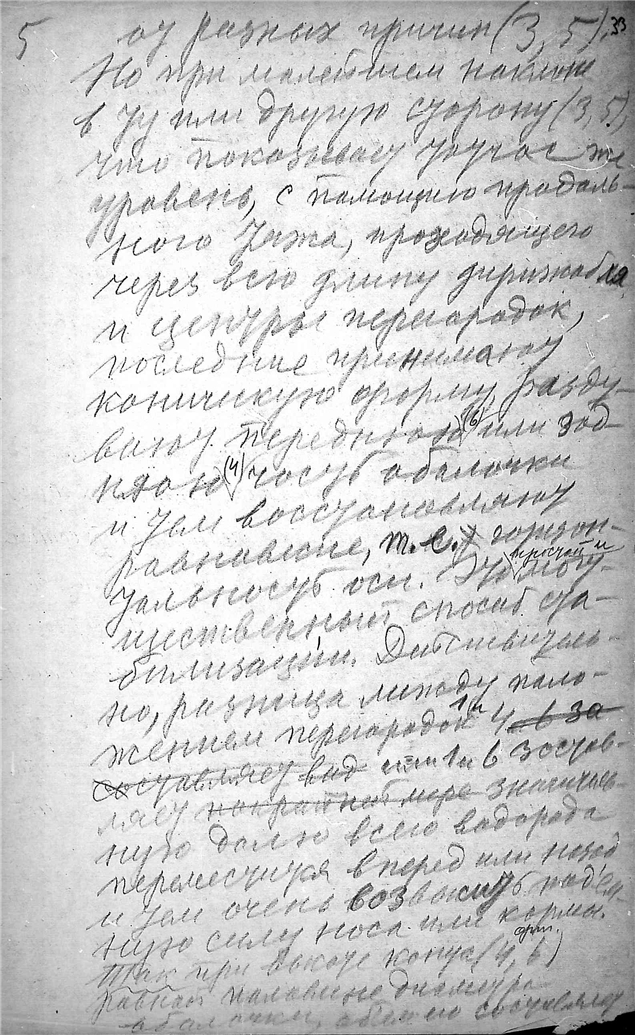 5 от разных причин (3, 5). 33
Но при малейшем наклоне
в ту или другую сторону (3, 5),
что показывает тотчас же
уровень, с помощию продоль-
ного тяжа, проходящего
через всю длину дирижабля
и центры перегородок,
последние принимают
коническую форму, разду-
вают переднюю (6) или зад-
нюю (4) часть оболочки
и тем восстановляют
равновесие, т. е. горизон-
тальность оси. Это простой и могу-
щественный способ ста-
билизации. Действитель-
но, разница между поло-
жением перегородок 1 и 4 в за
составляет вид или 1 и в 3 состав-
ляет по крайней мере значитель-
ную долю всего водорода
переместится вперед или назад
и тем очень возвысить подъем-
ную силу носа или кормы.
Так при высоте конуса (фиг. 4, 6)
равной половине диаметра
оболочки, объем его составляет